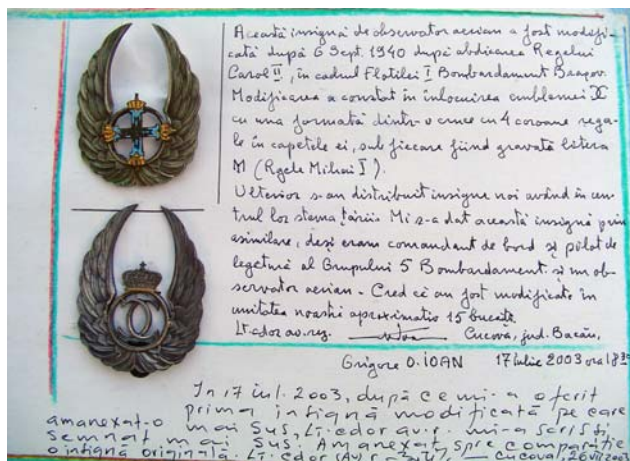 Această insignă de observator aerian a fost modifi-
cată după 6 Sept. 1940 după abdicarea Regelui
Carol II, în cadrul Flotilei I Bombardament Brașov.
Modificarea a constat în înlocuirea emblemei
cu una formată dintr-o cruce cu 4 coroane rega-
le în capetele ei, sub fiecare fiind gravată litera
M (Regele Mihai I).
Ulterior s-au distribuit insigne noi având în cen-
trul lor stema țării. Mi s-a dat această insignă prin
asimilare, deși eram comandant de bord și pilot de
legătură al Grupului 5 Bombardament și nu ob-
servator aerian. - Cred că au fost modificate în
unitatea noastră aproximativ 15 bucăți.
Lt. cdor av. rez. Cucova, jud. Bacău,
Grigore O. IOAN 17 iulie 2003 ora 18
In 17 iul. 2003, după ce mi-a oferit
prima insignă modificată pe care
am anexat-o mai sus, Lt. cdor av. r. mi-a scris și
semnat mai sus. Am anexat, spre comparație
o insignă originală. Lt. cdor (av) r. Cucova, 26 VII 2003